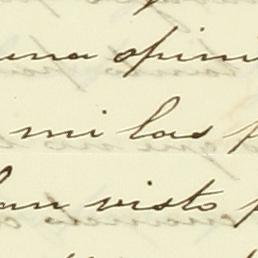 una opini
mi las p
han visto p